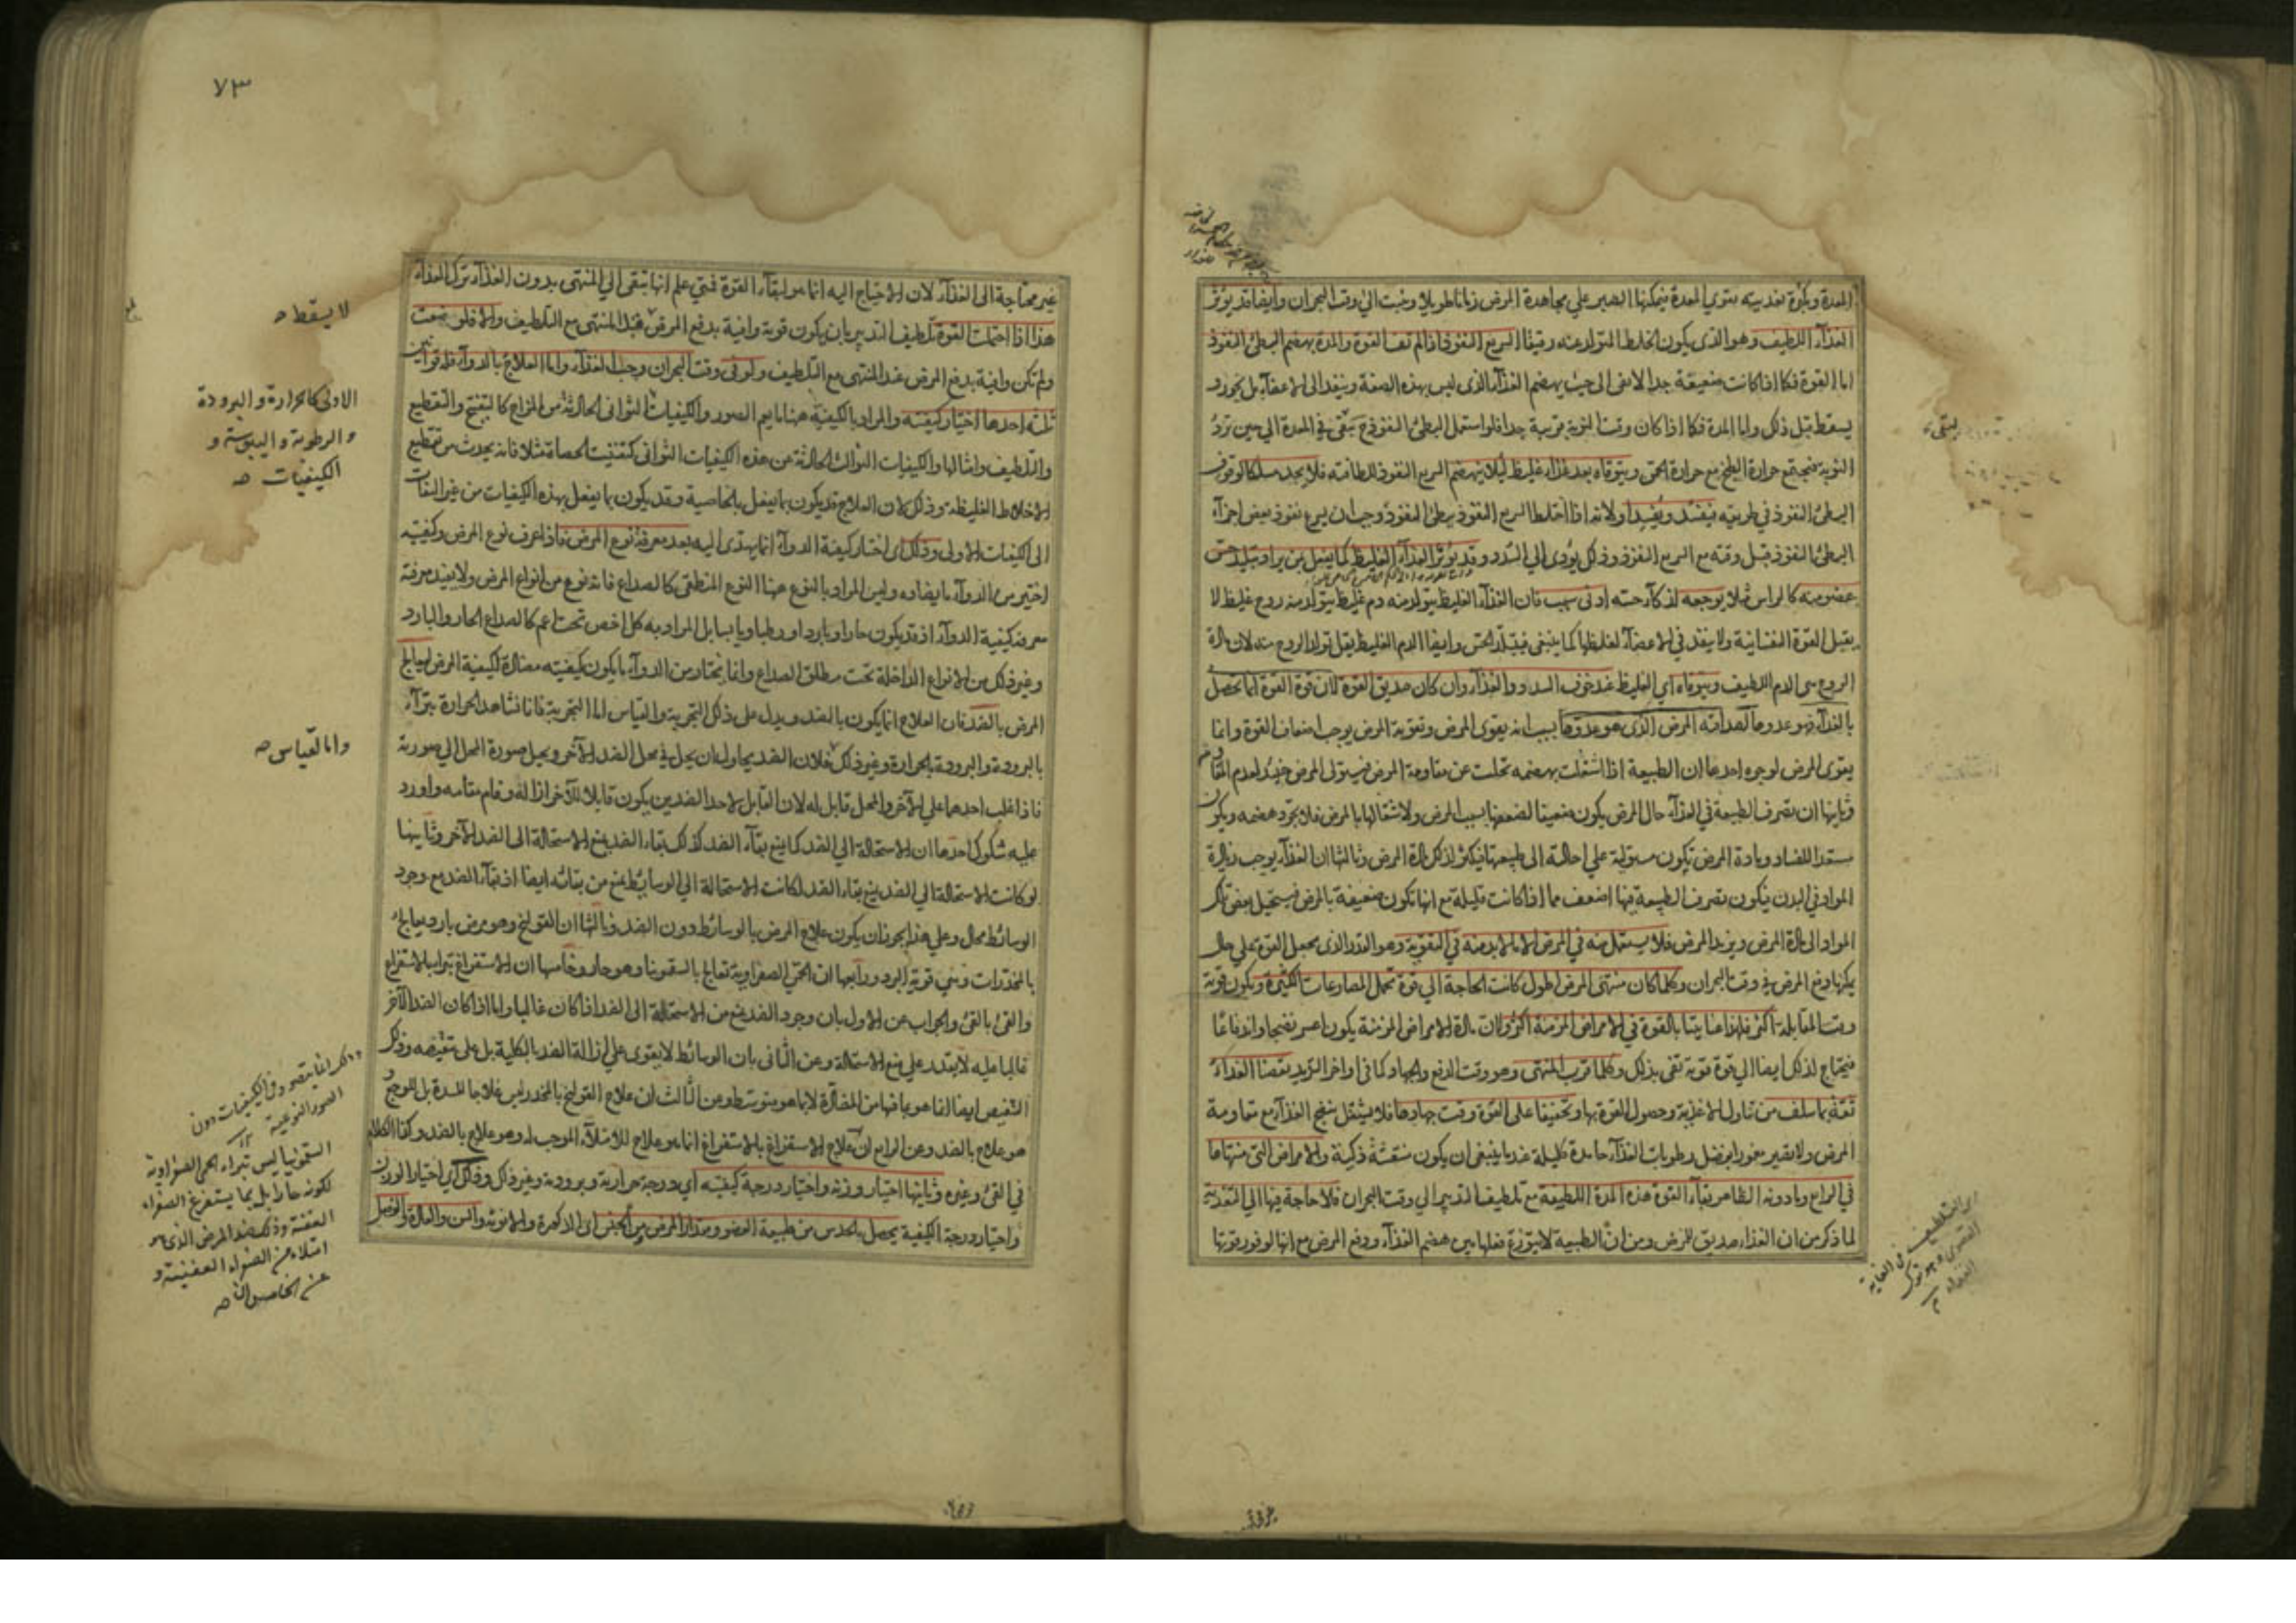 المعدة وبكثرة تغذيته يقوي المعدة فيمكنها الصبر علي مجاهدة المرض زمانا طويلا وخبت الي وقت البحران وايضا قد يؤثر
الغذآء اللطيف وهو الذى يكون الخلط المتولد عنه رقيقا السريع النفوذ اذا لم تف القوة والمدة بهضم البطئ النفوذ
اما القوة فكما اذا كانت ضعيفة جدا لا تفى الى حيث يهضم الغذآء الذى ليس بهذه الصفة وينفد الى الاعضآء بل يخور و
يسقط قبل ذلك واما المدة فكما اذا كان وقت النوبة قريبة جدا فلو استعمل البطئ النفوذ يبقى فى المعدة الى حين ترد
النوبة فيجتمع حرارة الطبخ مع حرارة الحمى ويتوقاه بعد غذآء غليظ ليلا ينهضم السريع النفوذ للطافته فلا يجد مسلكا لوقوف
البطئ النفوذ في طريقه فيفسد ويُفسد اولانه اذا اختلط السريع النفوذ ببطئ النفوذ وجب ان يسرع نفوذ بعض اجزآء
البطئ النفوذ قبل وقته مع السريع النفوذ وذلك يؤدى الي السدد وقد يؤثر الغذآء الغليظ كما يفعل بمن يراد تبليد حس
عضو منه كالراس ليلا يوجعه لذكآء حسه ادنى سبب فان الغذآء الغليظ يتولد منه دم غليظ يتولد منه روح غليظ لا
يقبل القوة النفسانية ولا ينفذ في الاعضآء لغلظها كما ينبغى فيتبلد الحس وايضا الدم الغليظ يقل تولد الروح منه لان مادة
الروح هى الدم اللطيف ويتوقاه اي الغليظ عند خوف السدد والغذآء وان كان صديق القوة لان قوة القوة انما تحصل
بالغذآء فهو عدوها لصداقته المرض الذى هو عدوها بسبب انه يقوى المرض وتقوية المرض يوجب اضعاف القوة وانما
يقوى المرض لوجوه احدها ان الطبيعة اذا اشتغلت بهضمه تخلت عن مقاومة المرض فيستولى المرض حينئذ لعدم المقاوم
وثانيها ان تصرف الطبيعة في الغذآء حال المرض يكون ضعيفا لضعفها بسبب المرض ولاشتغالها بالمرض فلا يجود هضمه ويكون
مستعدا للفساد ومادة المرض تكون مستولية علي احالته الى طبيعتها فيكثر لذلك مادة المرض وثالثها ان الغذآء يوجب زيادة
المواد في البدن فيكون تصرف الطبيعة فيها اضعف مما اذا كانت قليلة مع انها تكون ضعيفة بالمرض فيستحيل بعض تلك
المواد الى مادة المرض ويزيد المرض فلا يستعمل منه في المرض الا ما لا بد منه في التقوية وهو القدر الذى يجعل القوة علي حال
يمكنها دفع المرض فى وقت البحران وكلما كان منتهى المرض اطول كانت الحاجة الي قوة تحمل المصارعات الكثيرة ويكون قوية
وقت المقابلة اكثر فلهذا عنايتنا بالقوة في الامراض المزمنة اكثر ولان مادة الامراض المزمنة يكون اعسر نضجا واندفاعا
فيحتاج لذلك ايضا الي قوة قوية تفى بذلك وكلما قرب المنتهى وهو وقت الدفع والجهاد كما فى اواخر التزيد نقصنا الغذاء
ثقة بما سلف من تناول الاغذية وحصول القوة بها وتخفيفا على القوة وقت جهادها فلا يثقل نضج الغذآء مع مقاومة
في الرابع وما دونه الظاهر بقآء القوة هذه المدة اللطيفة مع تلطيف التدبير الي وقت البحران فلا حاجة فيها الي التغذية
لما ذكر من ان الغذاء صديق للمرض ومن ان الطبيعة لا يتوزع فعلها بين هضم الغذآء ودفع المرض مع انها لوفور قوتها
يبقى
٧٣
غير محتاجة الى الغذآء لان الاحتياج اليه انما هو لبقآء القوة فمتى علم انها تبقى الي المنتهى بدون الغذآء ترك الغذآء
هذا اذا احتملت القوة تلطيف التدبير بان يكون قوية وافية بدفع المرض عند المنتهى مع التلطيف والا فلو ضعفت
ولم تكن وافية بدفع المرض عند المنتهى مع التلطيف ولو فى وقت البحران وجب الغذآء واما العلاج بالدوآء فله قوانين
ثلثة احدها اختيار كيفيته والمراد بالكيفية ههنا ما يعم الصور والكيفيات الثوانى الحادثة من المزاج كالتفتيح والتقطيع
والتلطيف وامثالها والكيفيات الثوالث الحادثة من هذه الكيفيات الثوانى كتفتيت الحصاة مثلا فانه يحدث من تقطيع
الاخلاط الغليظة وذلك لان العلاج قد يكون بما يفعل بالخاصية وقد يكون بما يفعل بهذه الكيفيات من غير التفات
الى الكيفيات الاولى وذلك اى اختيار كيفية الدوآء انما يهتدى اليه بعد معرفة نوع المرض فاذا عرف نوع المرض وكيفيته
اختير من الدوآء ما يضاده وليس المراد بالنوع ههنا النوع المنطقى كالصداع فانه نوع من انواع المرض ولا يفيد معرفته
معرفة كيفية الدوآء اذ قد يكون حارا وباردا ورطبا ويابسا بل المراد به كل اخص تحت اعم كالصداع الحار والبارد
وغير ذلك من الانواع الداخلة تحت مطلق الصداع وانما يختار من الدوآء ما يكون كيفيته مضادة لكيفية المرض ليعالج
المرض بالضد فان العلاج انما يكون بالضد ويدل على ذلك التجربة والقياس اما التجربة فانا نشاهد الحرارة تبرآء
بالبرودة والبرودة بالحرارة وغير ذلك فلان الضد يحاول ان يحل في محل الضد الآخر ويحيل صورة المحل الي صورته
فاذا غلب احدهما علي الآخر والمحل قابل له لان القابل لاحد الضدين يكون قابلا للآخر ازاله وقام مقامه واورد
عليه شكوك احدها ان الاستحالة الي الضد كما يمنع بقآء الضد كذلك بقاء الضد يمنع الاستحالة الى الضد الآخر وثانيها
لو كانت الاستحالة الي الضد يمنع بقاء الضد لكانت الاستحالة الي الوسائط يمنع من بقائه ايضا اذ بقآء الضد مع وجود
الوسائط محال وعلي هذا يجوز ان يكون علاج المرض بالوسائط دون الضد وثالثها ان القولنج وهو مرض بارد يعالج
بالمخدرات وهي قوية البرد ورابعها ان الحمى الصفراوية تعالج بالسقمونيا وهو حار وخامسها ان الاستفراغ يبرأ بالاستفراغ
والقئ بالقئ والجواب عن الاول بان وجود الضد يمنع من الاستحالة الى الضد اذا كان غالبا واما اذا كان الضد الآخر
غالبا عليه لا يقدر علي منع الاستحالة وعن الثانى بان الوسائط لا يقوى علي ازالة الضد بالكلية بل على تنقيصه وذلك
التنقيص ايضا انما هو بما فيها من المضادة لا بما هو متوسط وعن الثالث ان علاج القولنج بالمخدر ليس علاجا للسدة بل للوجع و
هو علاج بالضد وعن الرابع ان علاج الاستفراغ بالاستفراغ انما هو علاج للامتلآء الموجب له وهو علاج بالضد وكذا الكلام
في القئ وغيره وثانيها اختيار وزنه واختيار درجة كيفيته أي درجة حرارته وبرودته وغير ذلك وذلك أي اختيار الوزن
واختيار درجة الكيفية يحصل بالحدس من طبيعة العضو ومقدار المرض ومن الجنس اى الذكورة والانوثة والسن والعادة والفصل
لا يسقط صح
الاولى كالحرارة والبرودة
والرطوبة واليبوسة و
الكيفيات صح
واما القياس صح
وذلك انما يتصور في الكيفيات دون
الصور النوعية
السقمونيا ليس تبراء الحمى الصفراوية
لكونه حارا بل بما يستفرغ الصفراء
العفنة وذلك ضد المرض الذى هو
امتلاء من الصفراء العفنة و
عن الخامس ان صح